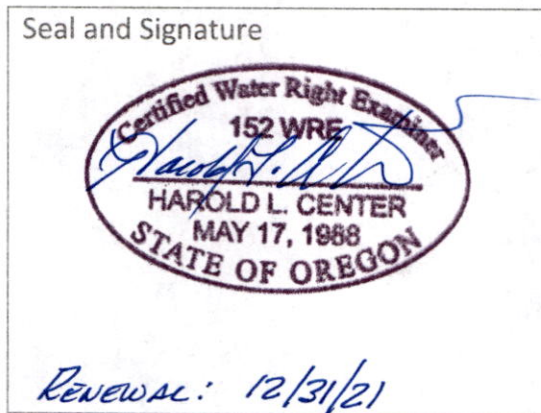 Seal and Signature
Certified Water Right Examiner
152 WRE
Harold L. Center
HAROLD L. CENTER
MAY 17, 1988
STATE OF OREGON
RENEWAL: 12/31/21